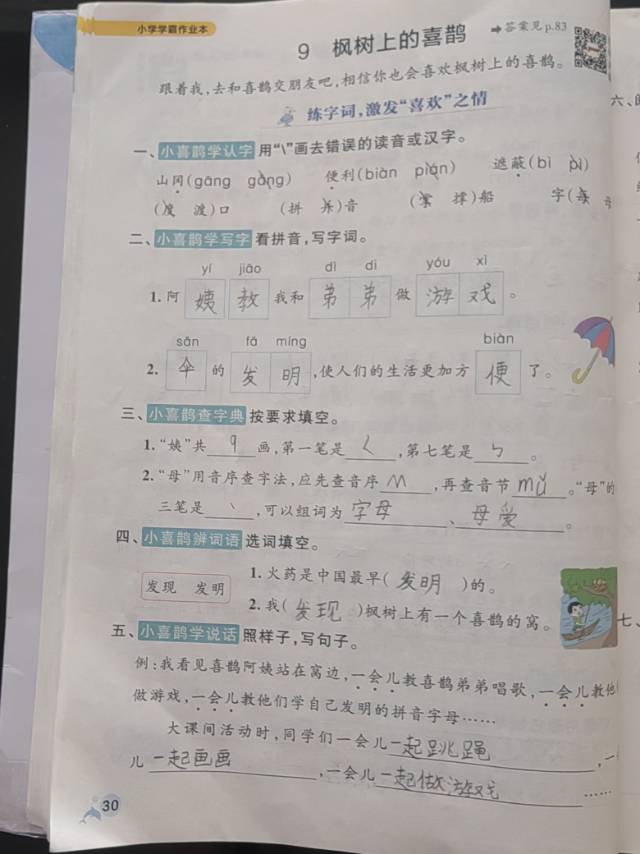 小学学霸作业本
9 枫树上的喜鹊 ➡答案见p.83
跟着我,去和喜鹊交朋友吧,相信你也会喜欢枫树上的喜鹊。
练字词,激发“喜欢”之情
一、小喜鹊学认字 用“\”画去错误的读音或汉字。
山冈(gāng gǎng) 便利(biàn pián) 遮蔽(bì pì)
(度 渡)口 (拼 乐)音 (掌 撑)船 字(每
二、小喜鹊学写字 看拼音,写字词。
yí jiāo dì di yóu xì
1. 阿 姨 教 我和 弟 弟 做 游 戏 。
sǎn fā míng biàn
2. 伞 的 发 明 ,使人们的生活更加方 便 了。
三、小喜鹊查字典 按要求填空。
1. “姨”共 9 画,第一笔是 ㄑ ,第七笔是 ㄣ 。
2. “母”用音序查字法,应先查音序 M ,再查音节 mǔ 。“母”的
三笔是 丶 ,可以组词为 字母 、 母爱 。
四、小喜鹊辨词语 选词填空。
发现 发明
1. 火药是中国最早( 发明 )的。
2. 我( 发现 )枫树上有一个喜鹊的窝。
五、小喜鹊学说话 照样子,写句子。
例:我看见喜鹊阿姨站在窝边,一会儿教喜鹊弟弟唱歌,一会儿教他
做游戏,一会儿教他们学自己发明的拼音字母……
大课间活动时,同学们一会儿 一起跳绳 ,一
儿 一起画画 ,一会儿 一起做游戏 ……
30
六、
七、